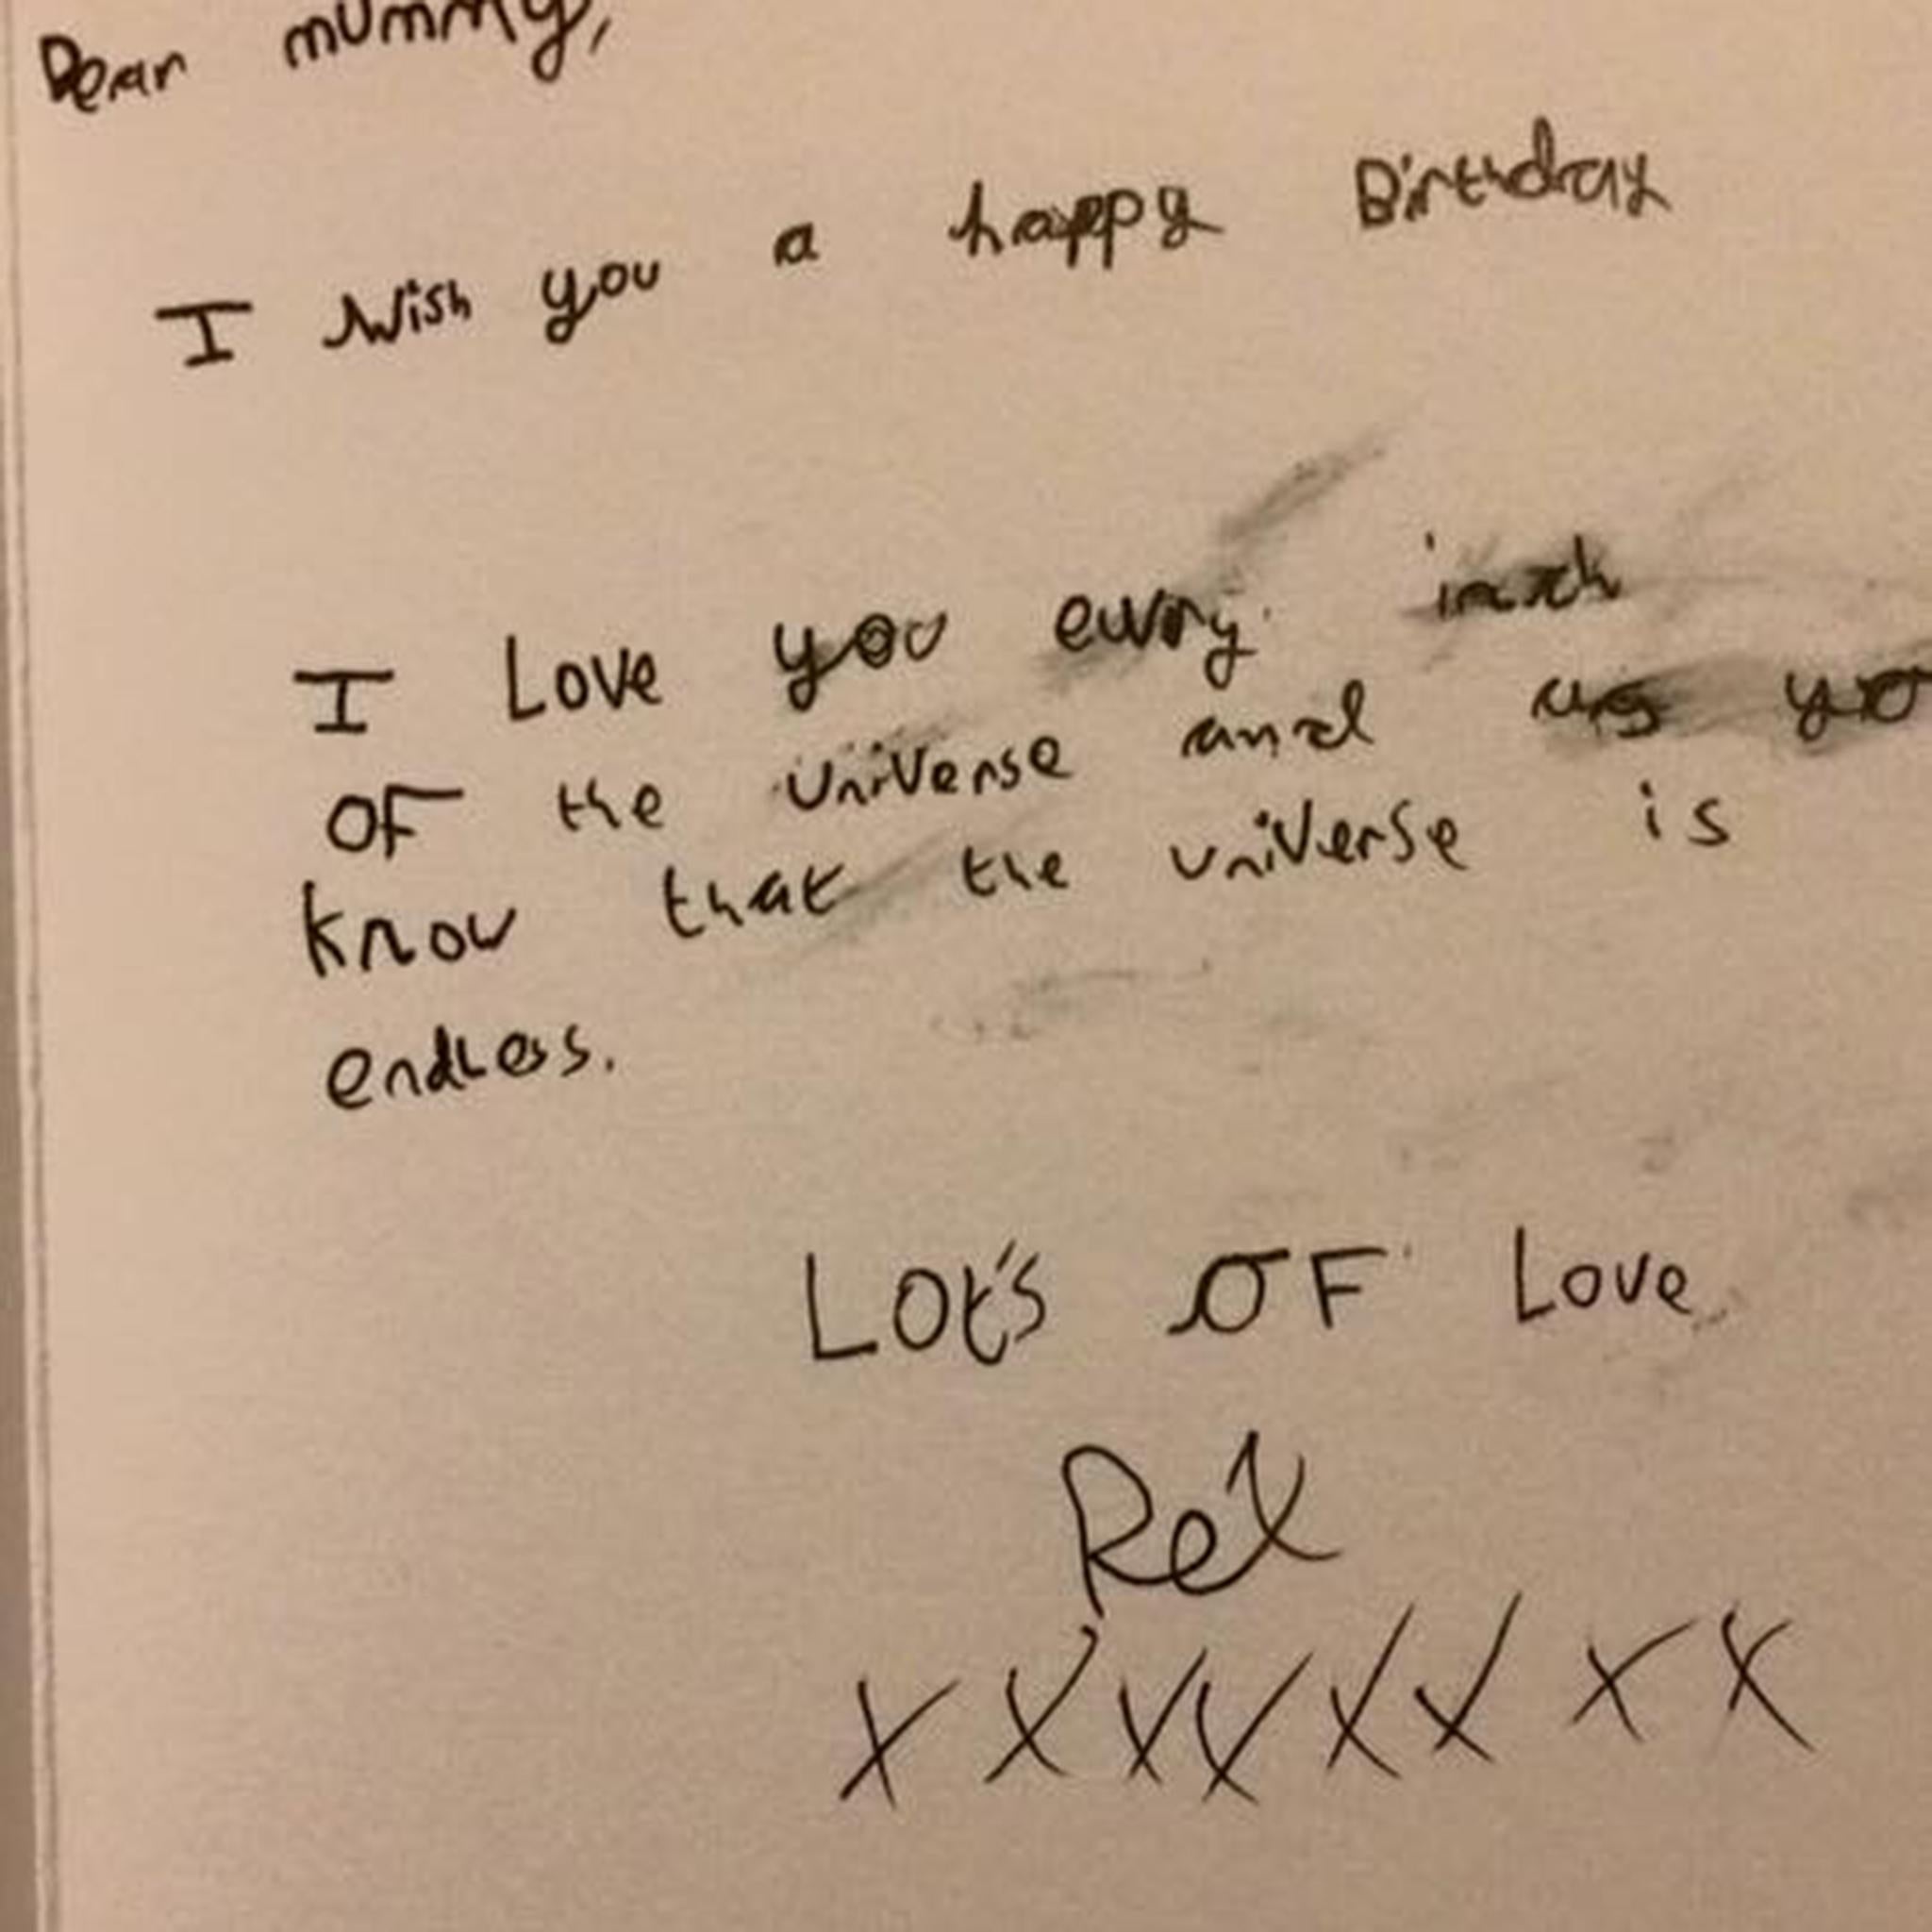 Dear mummy,
I wish you a happy Birthday
I Love you evry inch
OF the universe and as yo
know that the universe is
endless.
LOt's OF Love
Rex
x x x x x x x x